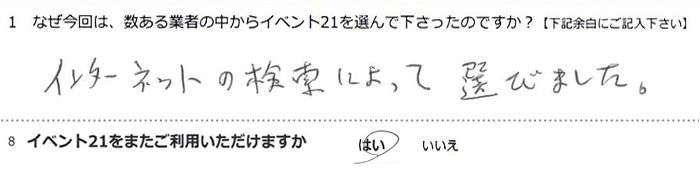 1 なぜ今回は、数ある業者の中からイベント21を選んで下さったのですか？【下記余白にご記入下さい】
インターネットの検索によって選びました。
8 イベント21をまたご利用いただけますか はい いいえ